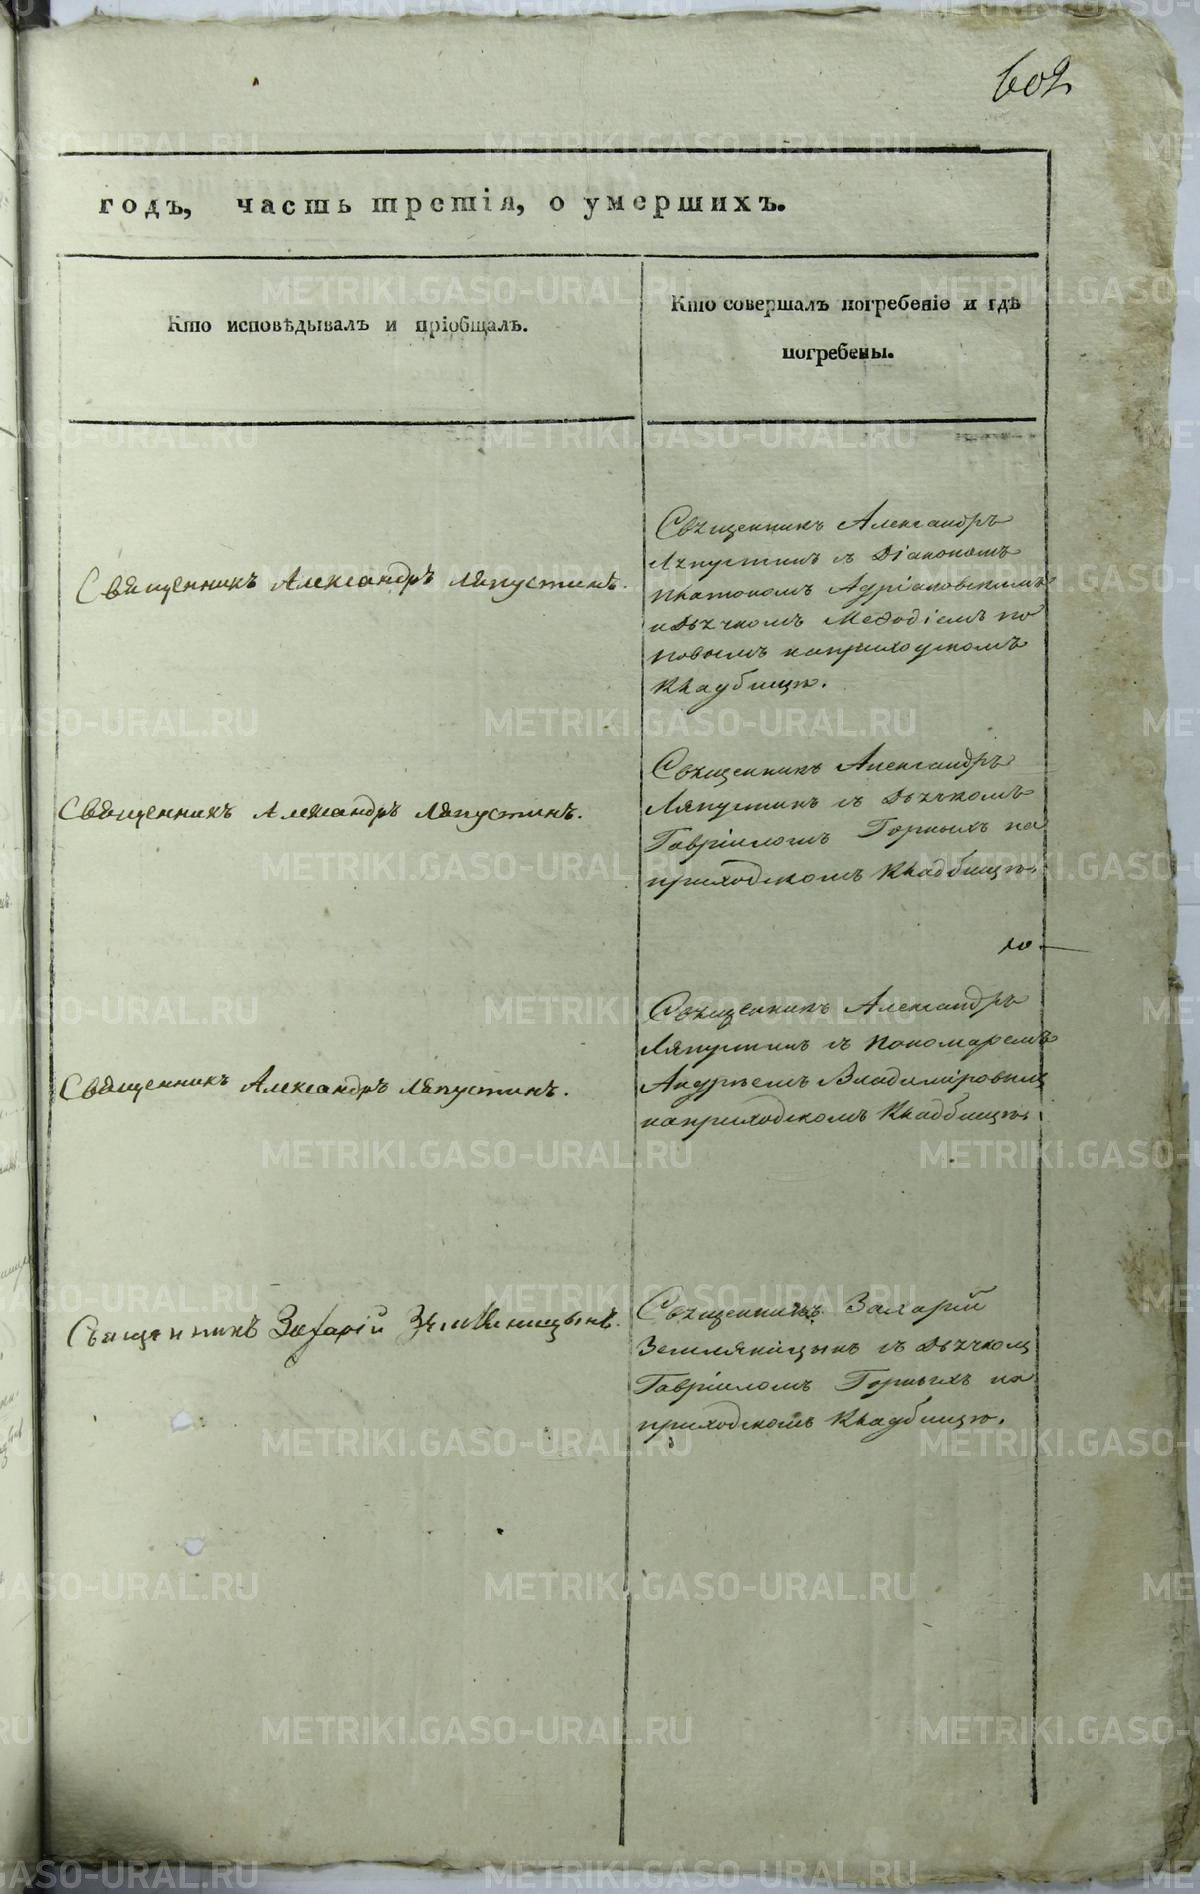 602
годъ, часть третія, о умершихъ.
Кто исповѣдывалъ и пріобщалъ.
Кто совершалъ погребеніе и гдѣ
погребены.
Священникъ Александръ
Ляпустинъ съ Діакономъ
Платономъ Адріановскимъ
и Дьячкомъ Меѳодіемъ По
повымъ на приходскомъ
Кладбищѣ.
Священникъ Александръ Ляпустинъ.
Священникъ Александръ
Ляпустинъ съ Дьячкомъ
Гавріиломъ Горныхъ на
приходскомъ Кладбищѣ.
Священникъ Александръ Ляпустинъ.
Священникъ Александръ
Ляпустинъ съ Пономаремъ
Андреемъ Владиміровым
на приходскомъ Кладбищѣ.
Священникъ Александръ Ляпустинъ.
Священникъ Захарій
Земляницынъ съ Дьячком
Гавріиломъ Горныхъ на
приходскомъ Кладбищѣ.
Священникъ Захарій Земляницынъ.
METRIKI.GASO-URAL.RU